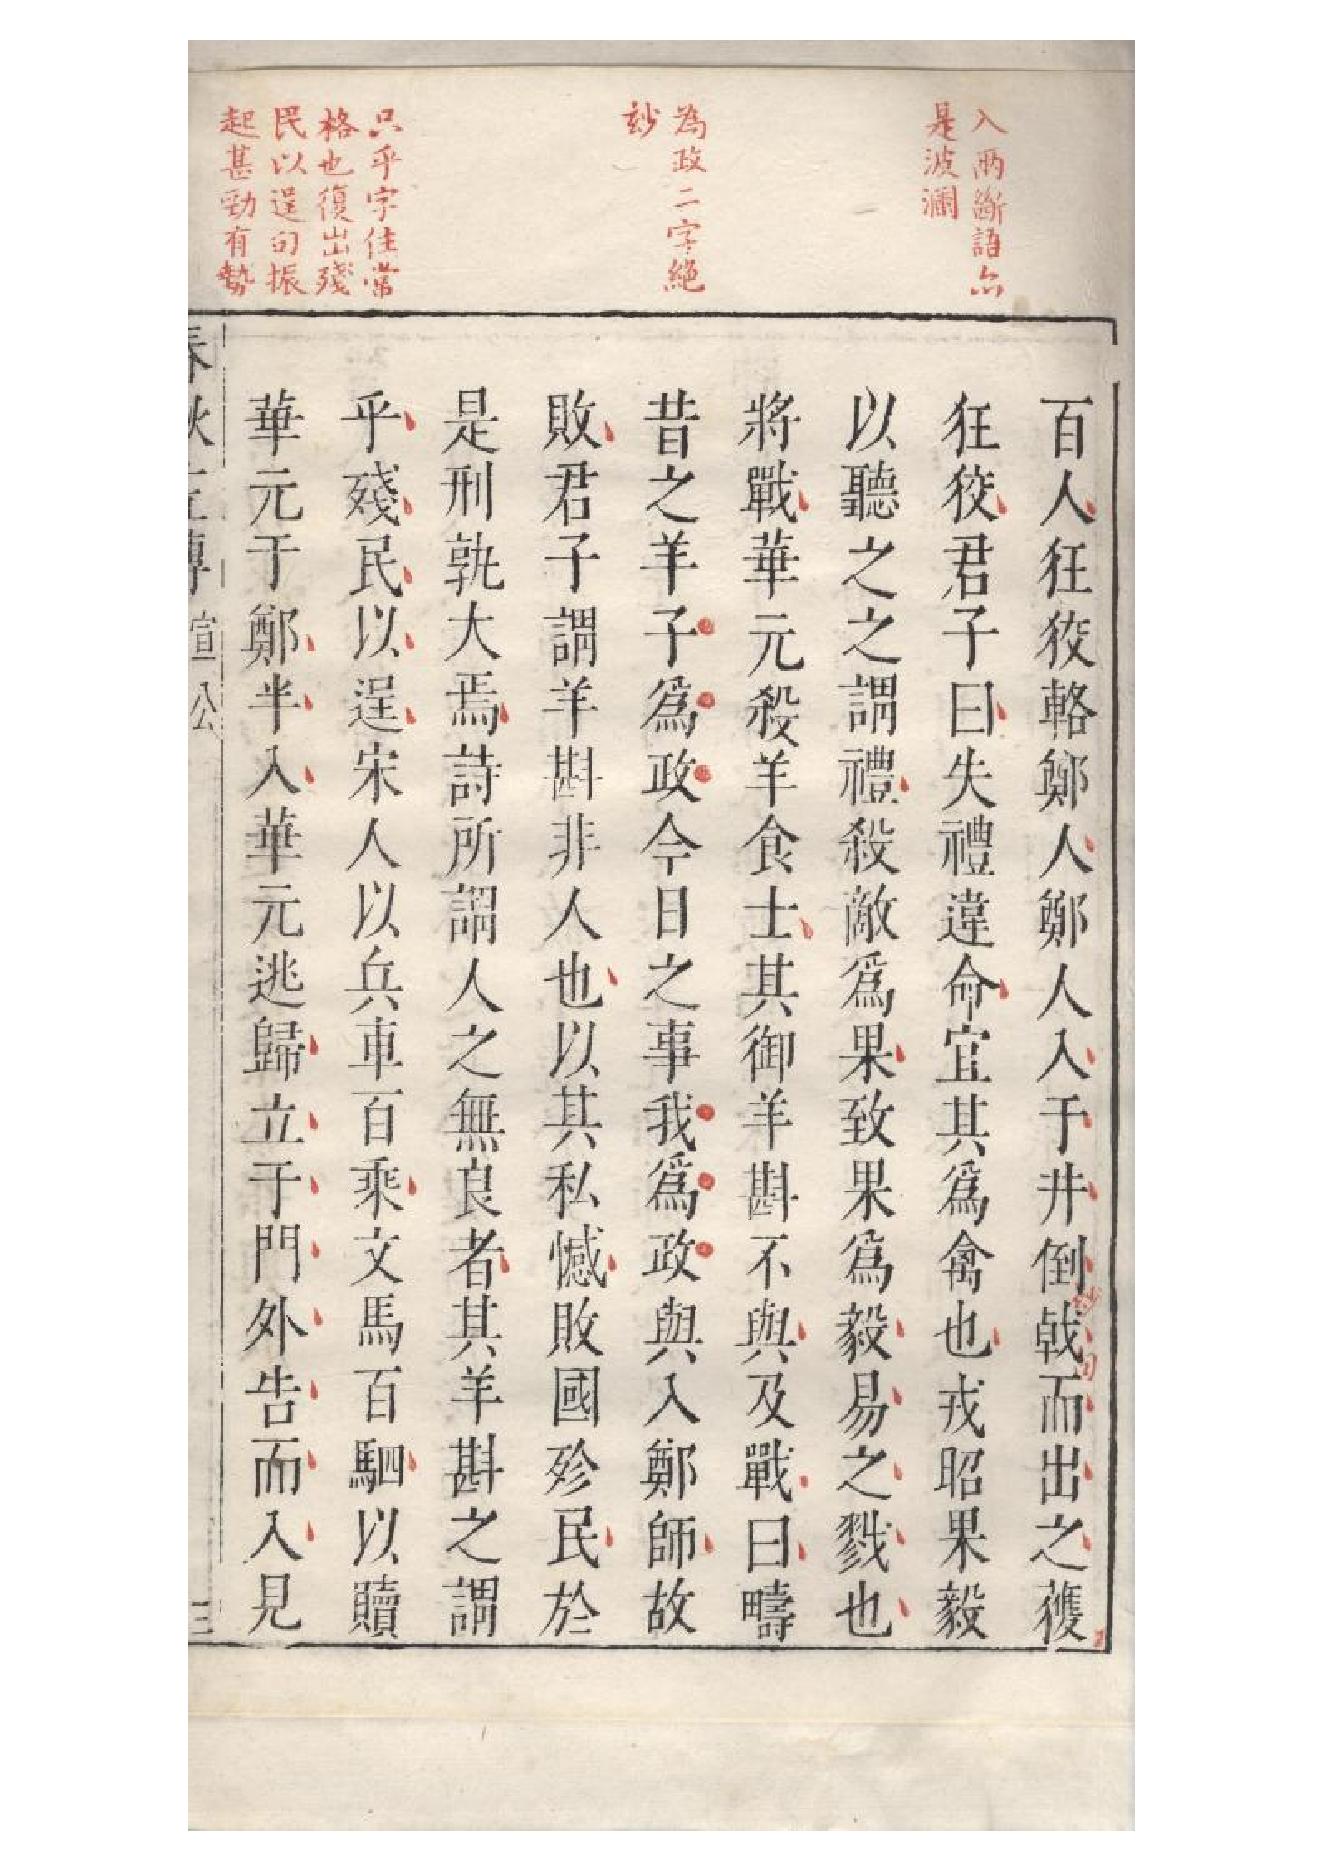 入兩斷語亦
是波瀾
為政二字絕
玅
只乎字住當
格也復出殘
民以逞句振
起甚勁有勢
百人狂狡輅鄭人鄭人入于井倒戟而出之獲
狂狡君子曰失禮違命宜其爲禽也戎昭果毅
以聽之之謂禮殺敵爲果致果爲毅易之戮也
將戰華元殺羊食士其御羊斟不與及戰曰疇
昔之羊子爲政今日之事我爲政與入鄭師故
敗君子謂羊斟非人也以其私憾敗國殄民於
是刑孰大焉詩所謂人之無良者其羊斟之謂
乎殘民以逞宋人以兵車百乘文馬百駟以贖
華元于鄭半入華元逃歸立于門外告而入見
春秋左傳 宣公 三